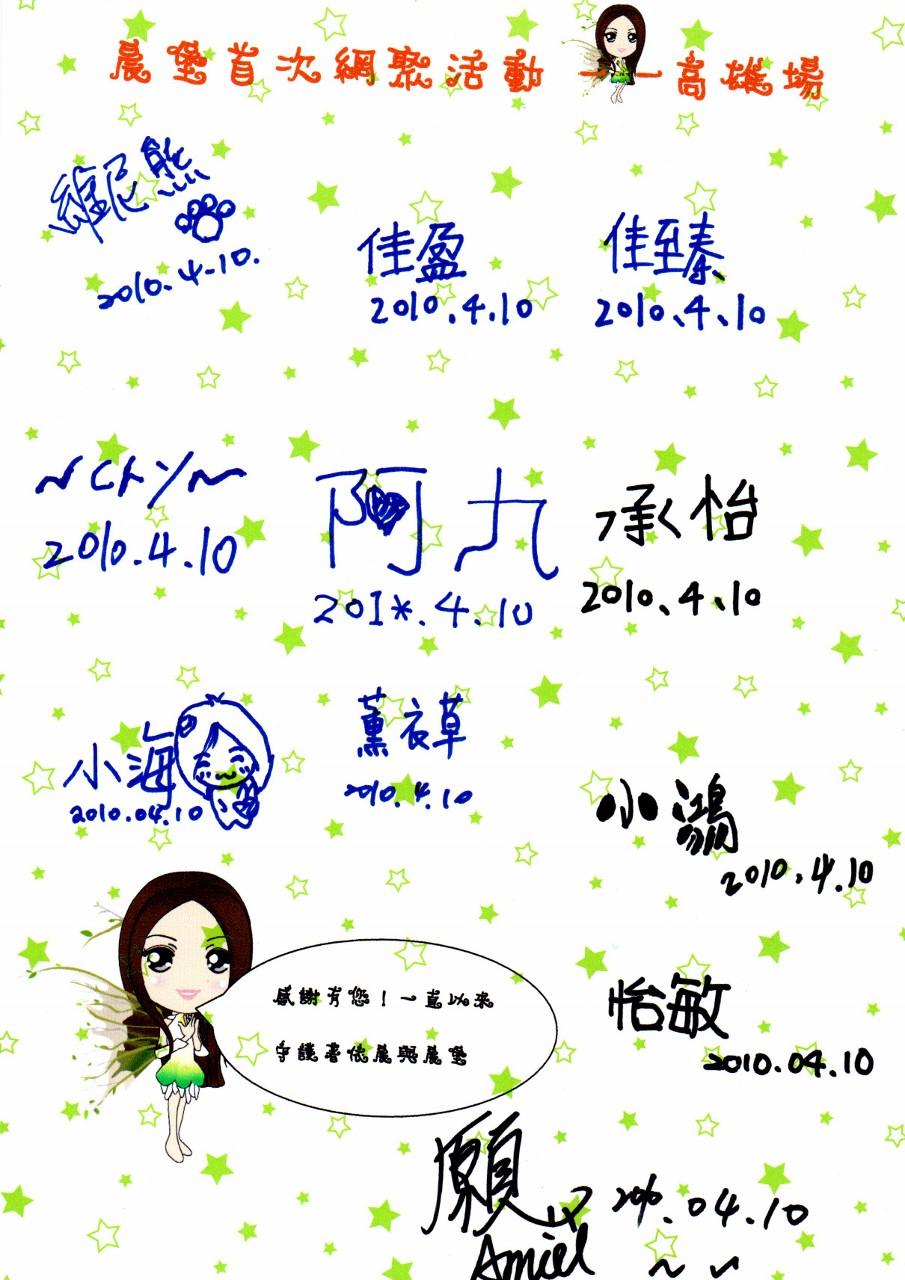 晨堡首次網聚活動——高雄場
維尼熊
2010.4-10.
佳盈
2010.4.10
佳臻
2010、4、10
2010.4.10
阿九
201*.4.10
承怡
2010、4、10
小海
2010.04.10
薰衣草
2010.4.10
小鴻
2010.4.10
感謝有您！一直以來
守護著依晨與晨堡
怡敏
2010.04.10
願
2010.04.10
Amiel